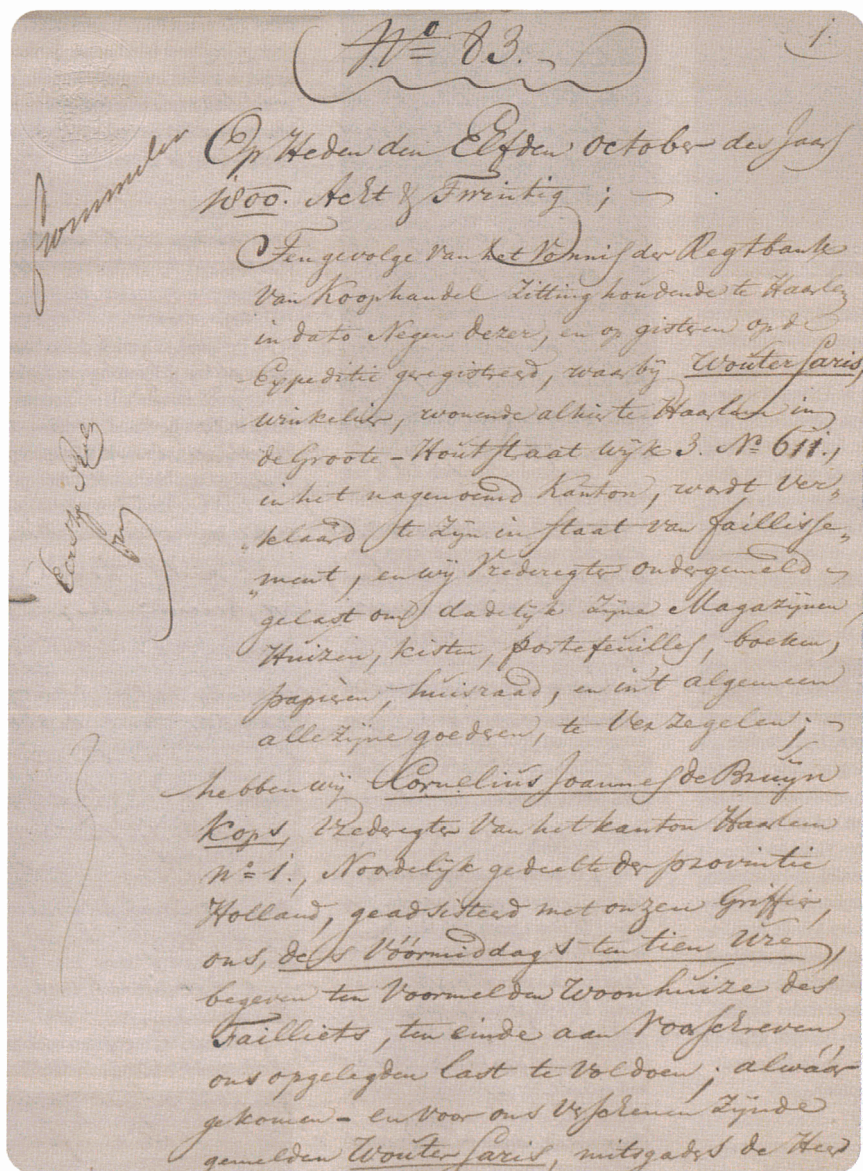 Nº 83.
1.
Op Heden den Elfden october des Jaars
1800. Acht & Twintig ;
Ten gevolge van het Vonnis der Regtbank
van Koophandel zitting houdende te Haarlem
in dato Negen dezer, en op gisteren op de
Expeditie geregistreerd, waarbij Wouter Saris,
winkelier, wonende alhier te Haarlem in
de Groote - Houtstraat wijk 3. Nº 611.,
in het nagenoemd Kanton, wordt ver„
„klaard te zijn in staat van faillisse„
„ment, en wij Vrederegter ondergemeld
gelast om dadelijk zijne Magazijnen,
Huizen, kisten, portefeuilles, boeken,
papieren, huisraad, en in't algemeen
alle zijne goederen, te Verzegelen ;
hebben wij Cornelius Joannes de Bruyn
Kops, Vrederegter van het kanton Haarlem
nº 1., Noordelijk gedeelte der provintie
Holland, geadsisteerd met onzen Griffier,
ons, des Vóórmiddags ten tien Ure,
begeven ten Voormelden Woonhuize des
Failliets, ten einde aan Voorschreven
ons opgelegden last te Voldoen ; alwáár
gekomen - en voor ons verschenen zijnde
gemelden Wouter Saris, mitsgaders de Heer